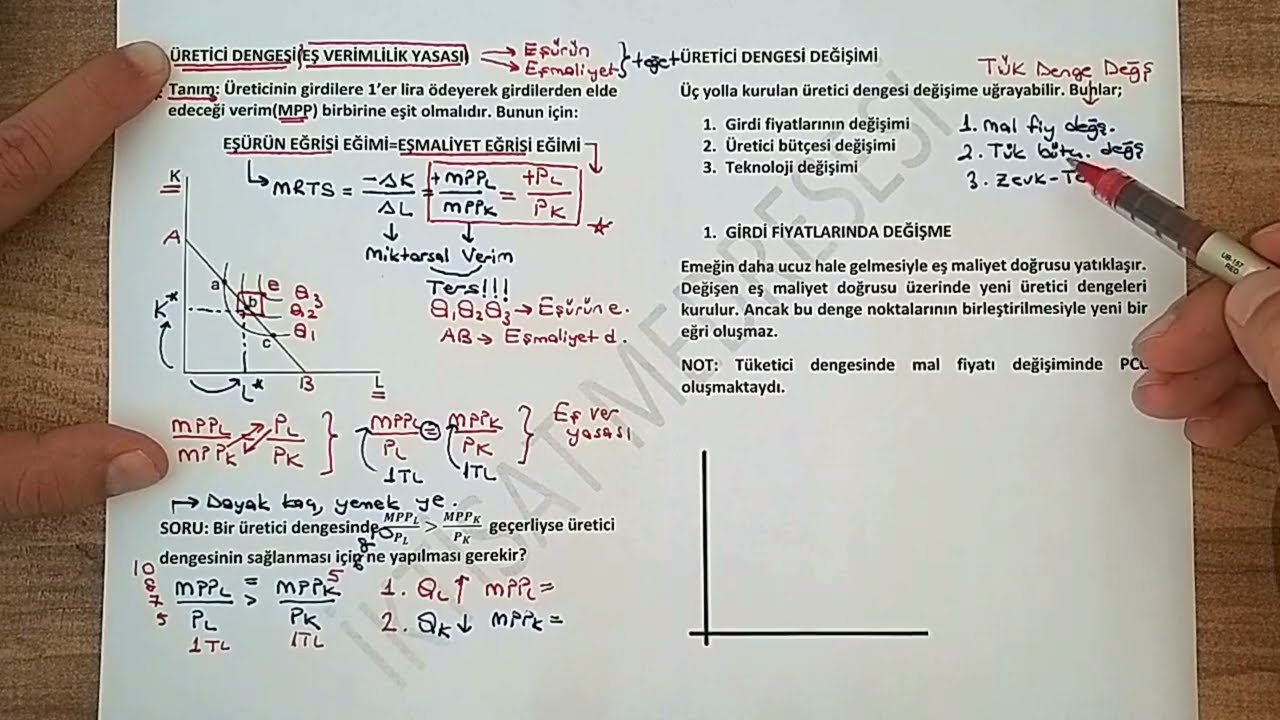 ÜRETİCİ DENGESİ(EŞ VERİMLİLİK YASASI) → Eşürün
→ Eşmaliyet } teğet
Tanım: Üreticinin girdilere 1'er lira ödeyerek girdilerden elde
edeceği verim(MPP) birbirine eşit olmalıdır. Bunun için:
EŞÜRÜN EĞRİSİ EĞİMİ=EŞMALİYET EĞRİSİ EĞİMİ
MRTS = -ΔK/ΔL = +MPPL/MPPK = +PL/PK
Miktarsal Verim
Ters!!!
K
A
a
e
b
c
Q3
Q2
Q1
K*
L*
B
L
Q1Q2Q3 → Eşürün e.
AB → Eşmaliyet d.
MPPL/MPPK PL/PK } MPPL/PL = MPPK/PK } Eş ver
yasası
1TL 1TL
→ Dayak kaç, yemek ye.
SORU: Bir üretici dengesinde MPPL/PL > MPPK/PK geçerliyse üretici
dengesinin sağlanması için ne yapılması gerekir?
10
8
7
5
5
MPPL/PL = > MPPK/PK
1TL 1TL
1. QL ↑ MPPL =
2. QK ↓ MPPK =
ÜRETİCİ DENGESİ DEĞİŞİMİ
TÜK Denge Değş
Üç yolla kurulan üretici dengesi değişime uğrayabilir. Bunlar;
1. Girdi fiyatlarının değişimi
2. Üretici bütçesi değişimi
3. Teknoloji değişimi
1. mal fiy değş.
2. Tük bütç. değş
3. Zevk-Te
1. GİRDİ FİYATLARINDA DEĞİŞME
Emeğin daha ucuz hale gelmesiyle eş maliyet doğrusu yatıklaşır.
Değişen eş maliyet doğrusu üzerinde yeni üretici dengeleri
kurulur. Ancak bu denge noktalarının birleştirilmesiyle yeni bir
eğri oluşmaz.
NOT: Tüketici dengesinde mal fiyatı değişiminde PCC
oluşmaktaydı.
İKTİSAT MEDRESESİ
UB-157
RED